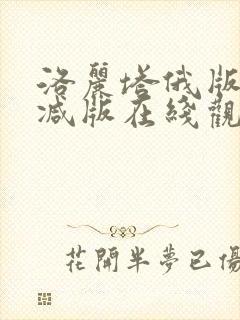 洛麗塔俄版
減版在綫觀
花開半夢已傷